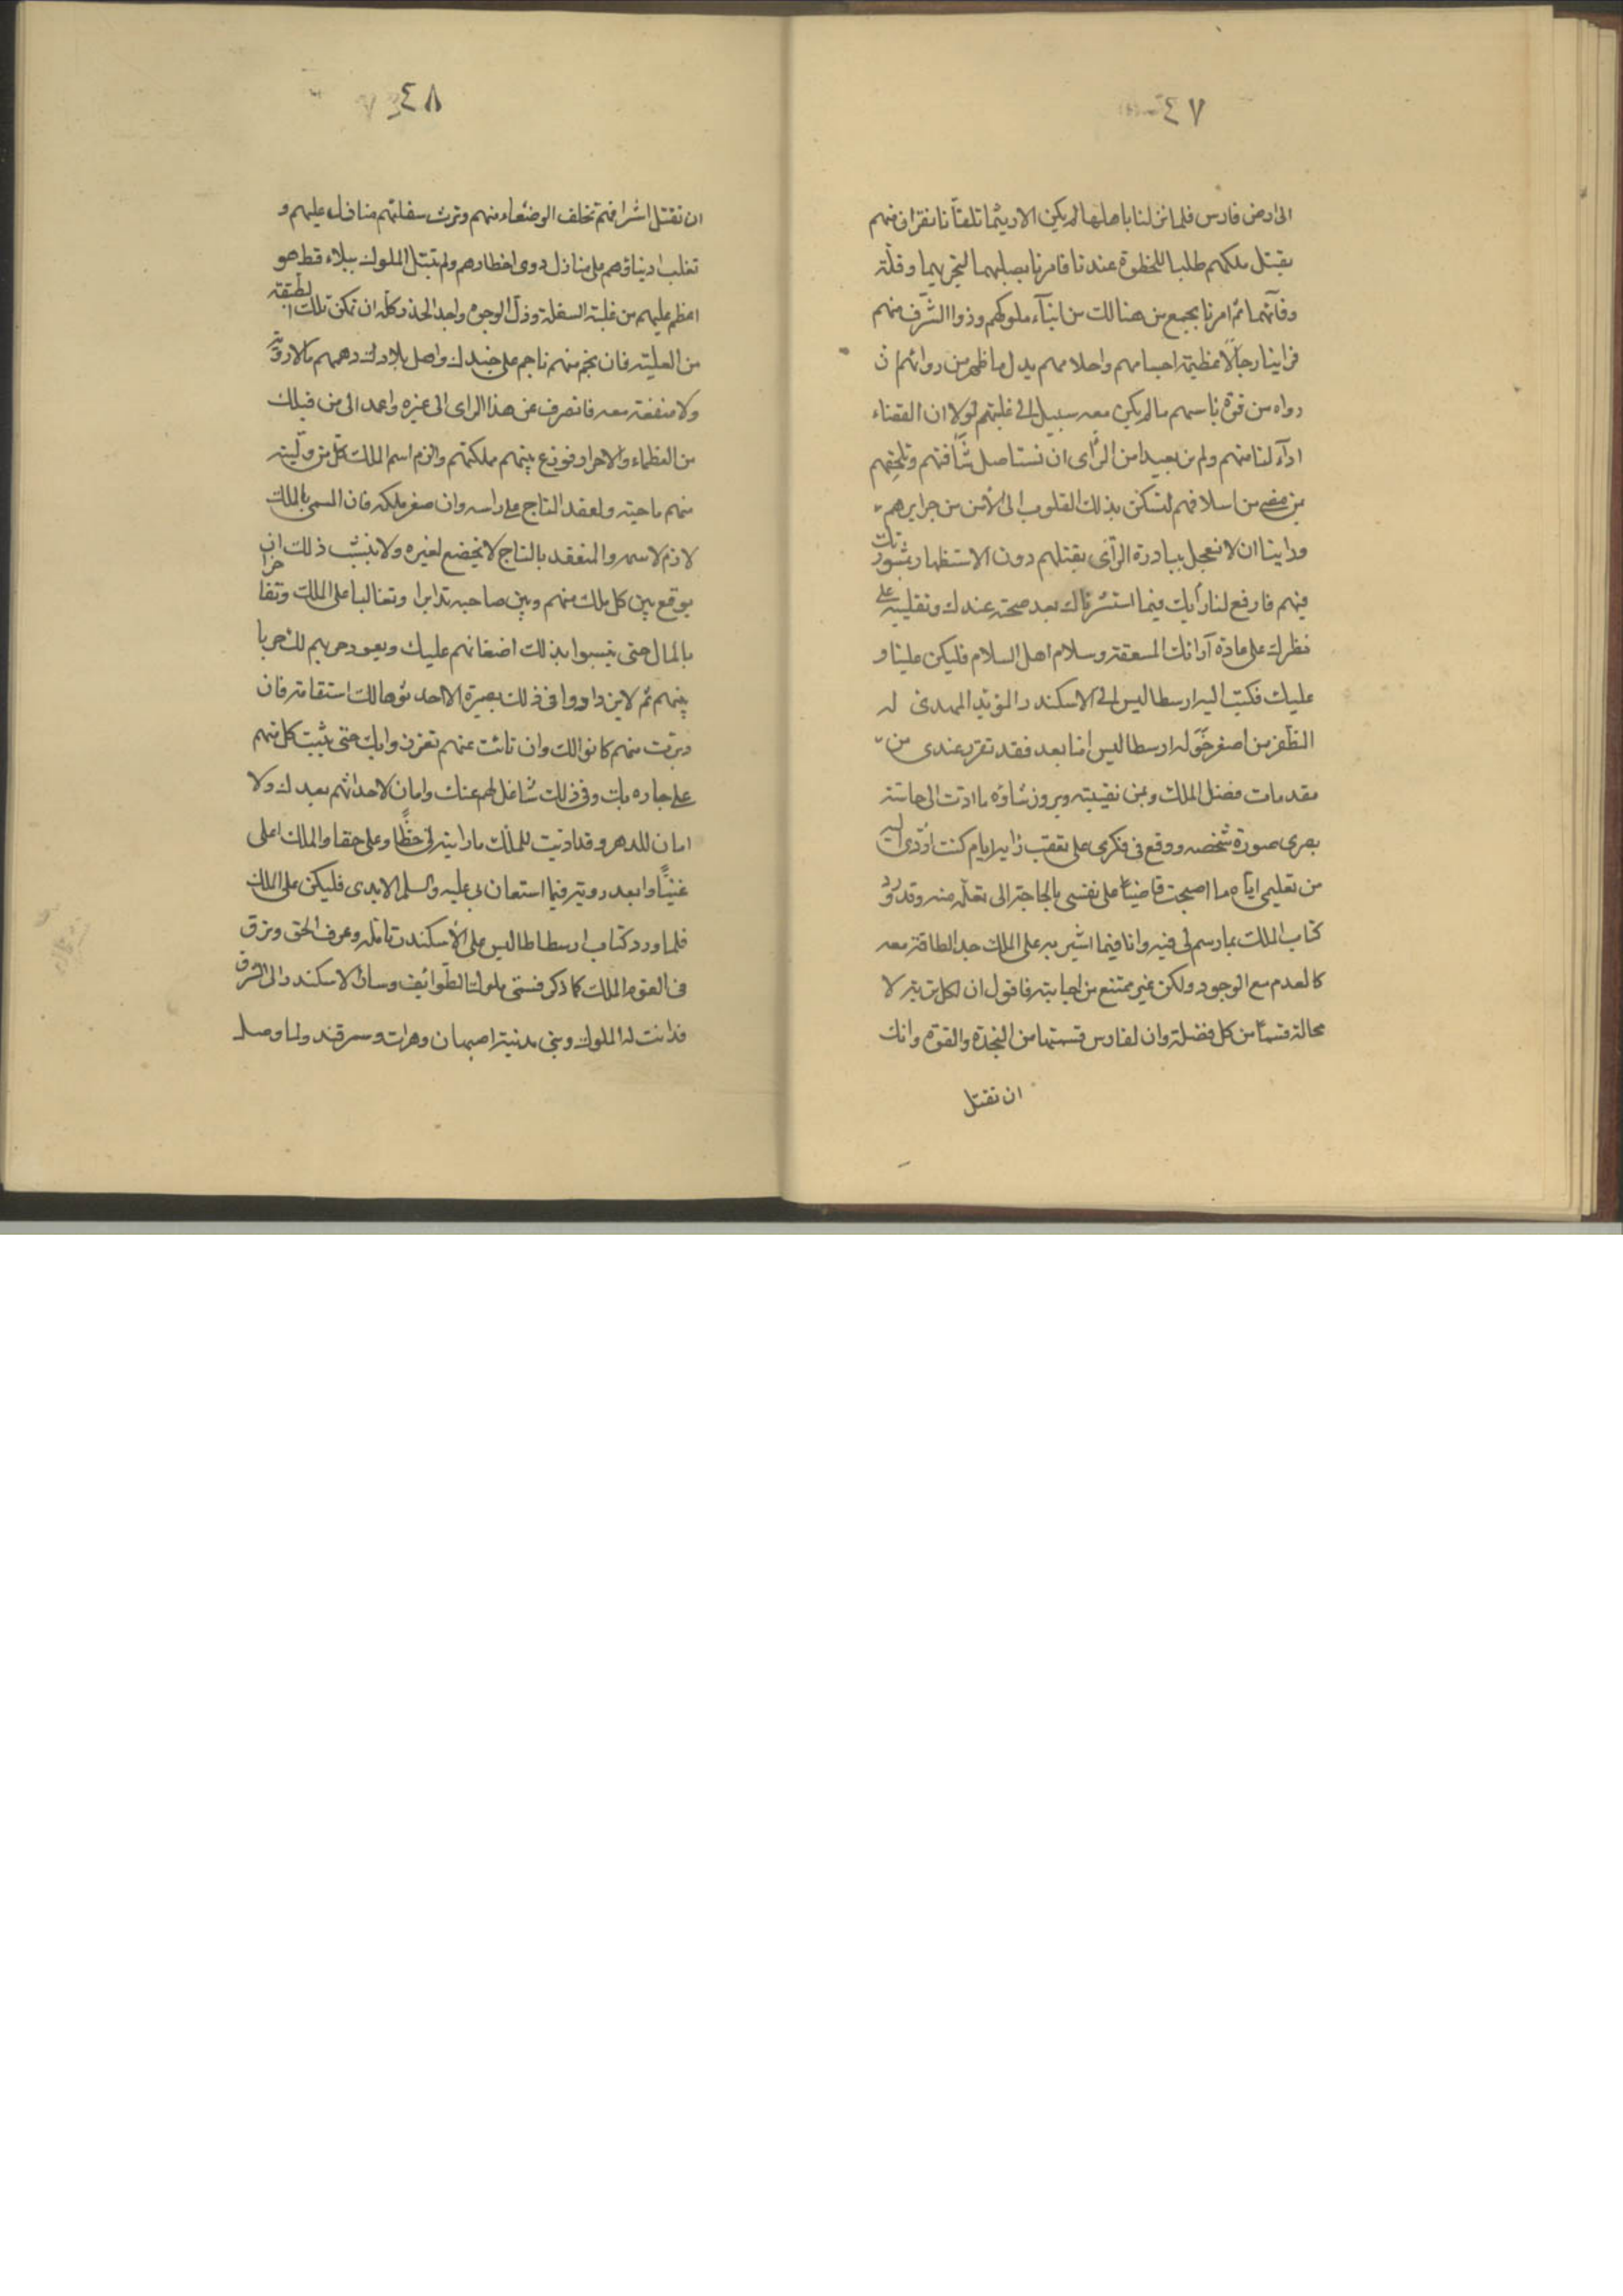 ٤٧
الى ارض فارس فلما نزلنا باهلها لم يكن الا ريثما تلقانا نفران منهم
بقتل ملكهم طلبا للخظوة عندنا فامرنا بصلبهما لتجريهما وقلة
وفآئهما ثم امرنا بجمع من هنالك من ابنآء ملوكهم وذوا الشرف منهم
فراينا رجالا عظيمة اجسامهم واحلامهم يدل ما ظهر من روائهم ان
رواه من قوة باسهم ما لم يكن معه سبيل الى غلبتهم لولا ان القضاء
ادآء لنا منهم ولم نر بعيدا من الرأى ان نستاصل شأفتهم ونلحقهم
بمن مضى من اسلافهم لتسكن بذلك القلوب الى الأمن من جرايرهم
وراينا ان لا نعجل ببادرة الرآى بقتلهم دون الاستظهار بمشورتك
فيهم فارفع لنا رأيك فيما استشرناك بعد صحته عندك وتقليبه على
نظرك على عادة آرائك المسعقة وسلام اهل السلام فليكن علينا و
عليك فكتب اليه ارسطاليس الى الاسكندر المؤيد المهدى له
الظفر من اصغر خوله ارسطاليس اما بعد فقد تقرر عندى من
مقدمات فضل الملك ويمن نقيبته وبروز شاؤه ما ادت الى حاسة
بصرى صورة شخصه ووقع فى فكرى على تعقب رايه ايام كنت اؤدى اليه
من تعليمى اياه ما اصبحت قاضيا على نفسى بالحاجة الى تعلمه منه وقد ورد
كتاب الملك بما رسم لى فيه وانا فيما اشير به على الملك جد الطاقة معه
كالعدم مع الوجود ولكن غير ممتنع من اجابته فاقول ان لكل تربة لا
محالة قسما من كل فضلة وان لفارس قسمتها من النجدة والقوة وانك
ان تقتل
٤٨
ان تقتل اشرافهم تخلف الوضعاء منهم وترث سفلتهم منازل عليهم و
تغلب ادنياؤهم على منازل ذوى اخطارهم ولم تبتل الملوك ببلاء قط هو
اعظم عليهم من غلبة السفلة وذل الوجوه واحد الحذر كله ان تمكن تلك الطبقة
من العلية فان نجم منهم ناجم على جندك واهل بلادك دهمهم ما لا روية
ولا منفعة معه فانصرف عن هذا الراى الى غيره واعمد الى من قبلك
من العظماء والاحرار فوزع بينهم مملكتهم والزم اسم الملك كل من وليته
منهم ناحيته ولعقد التاج على راسه وان صغر ملكه فان المسمى بالملك
لازم لاسمه والمنعقد بالتاج لا يخضع لغيره ولا ينشب ذلك ان
يوقع بين كل ملك منهم وبين صاحبه تدابرا وتغالبا على الملك وتفاخرا
بالمال حتى ينسبوا بذلك اضغانهم عليك ويعود حربهم لك حربا
بينهم ثم لا يزدادوا فى ذلك بصيرة الا احدثوها لك استقامة فان
دنوت منهم كانوا لك وان نائت عنهم تعززوا بك حتى يثبت كل منهم
على جاره بك وفى ذلك شاغل لهم عنك وامان لاحداثهم بعدك ولا
امان للدهر وقد ادّيت للملك ما رايته لى حظا وعلى حقا والملك اعلى
عينا وابعد روية فيما استعان بى عليه والسلم الابدى فليكن على الملك
فلما ورد كتاب ارسطاطاليس على الأسكندر تامله وعرف الحق وفرق
فى القوم الملك كما ذكر فسمى ملوك الطوائف وسار الاسكندر الى الشرق
فدانت له الملوك وبنى مدينة اصبهان وهراة وسمرقند ولما وصل